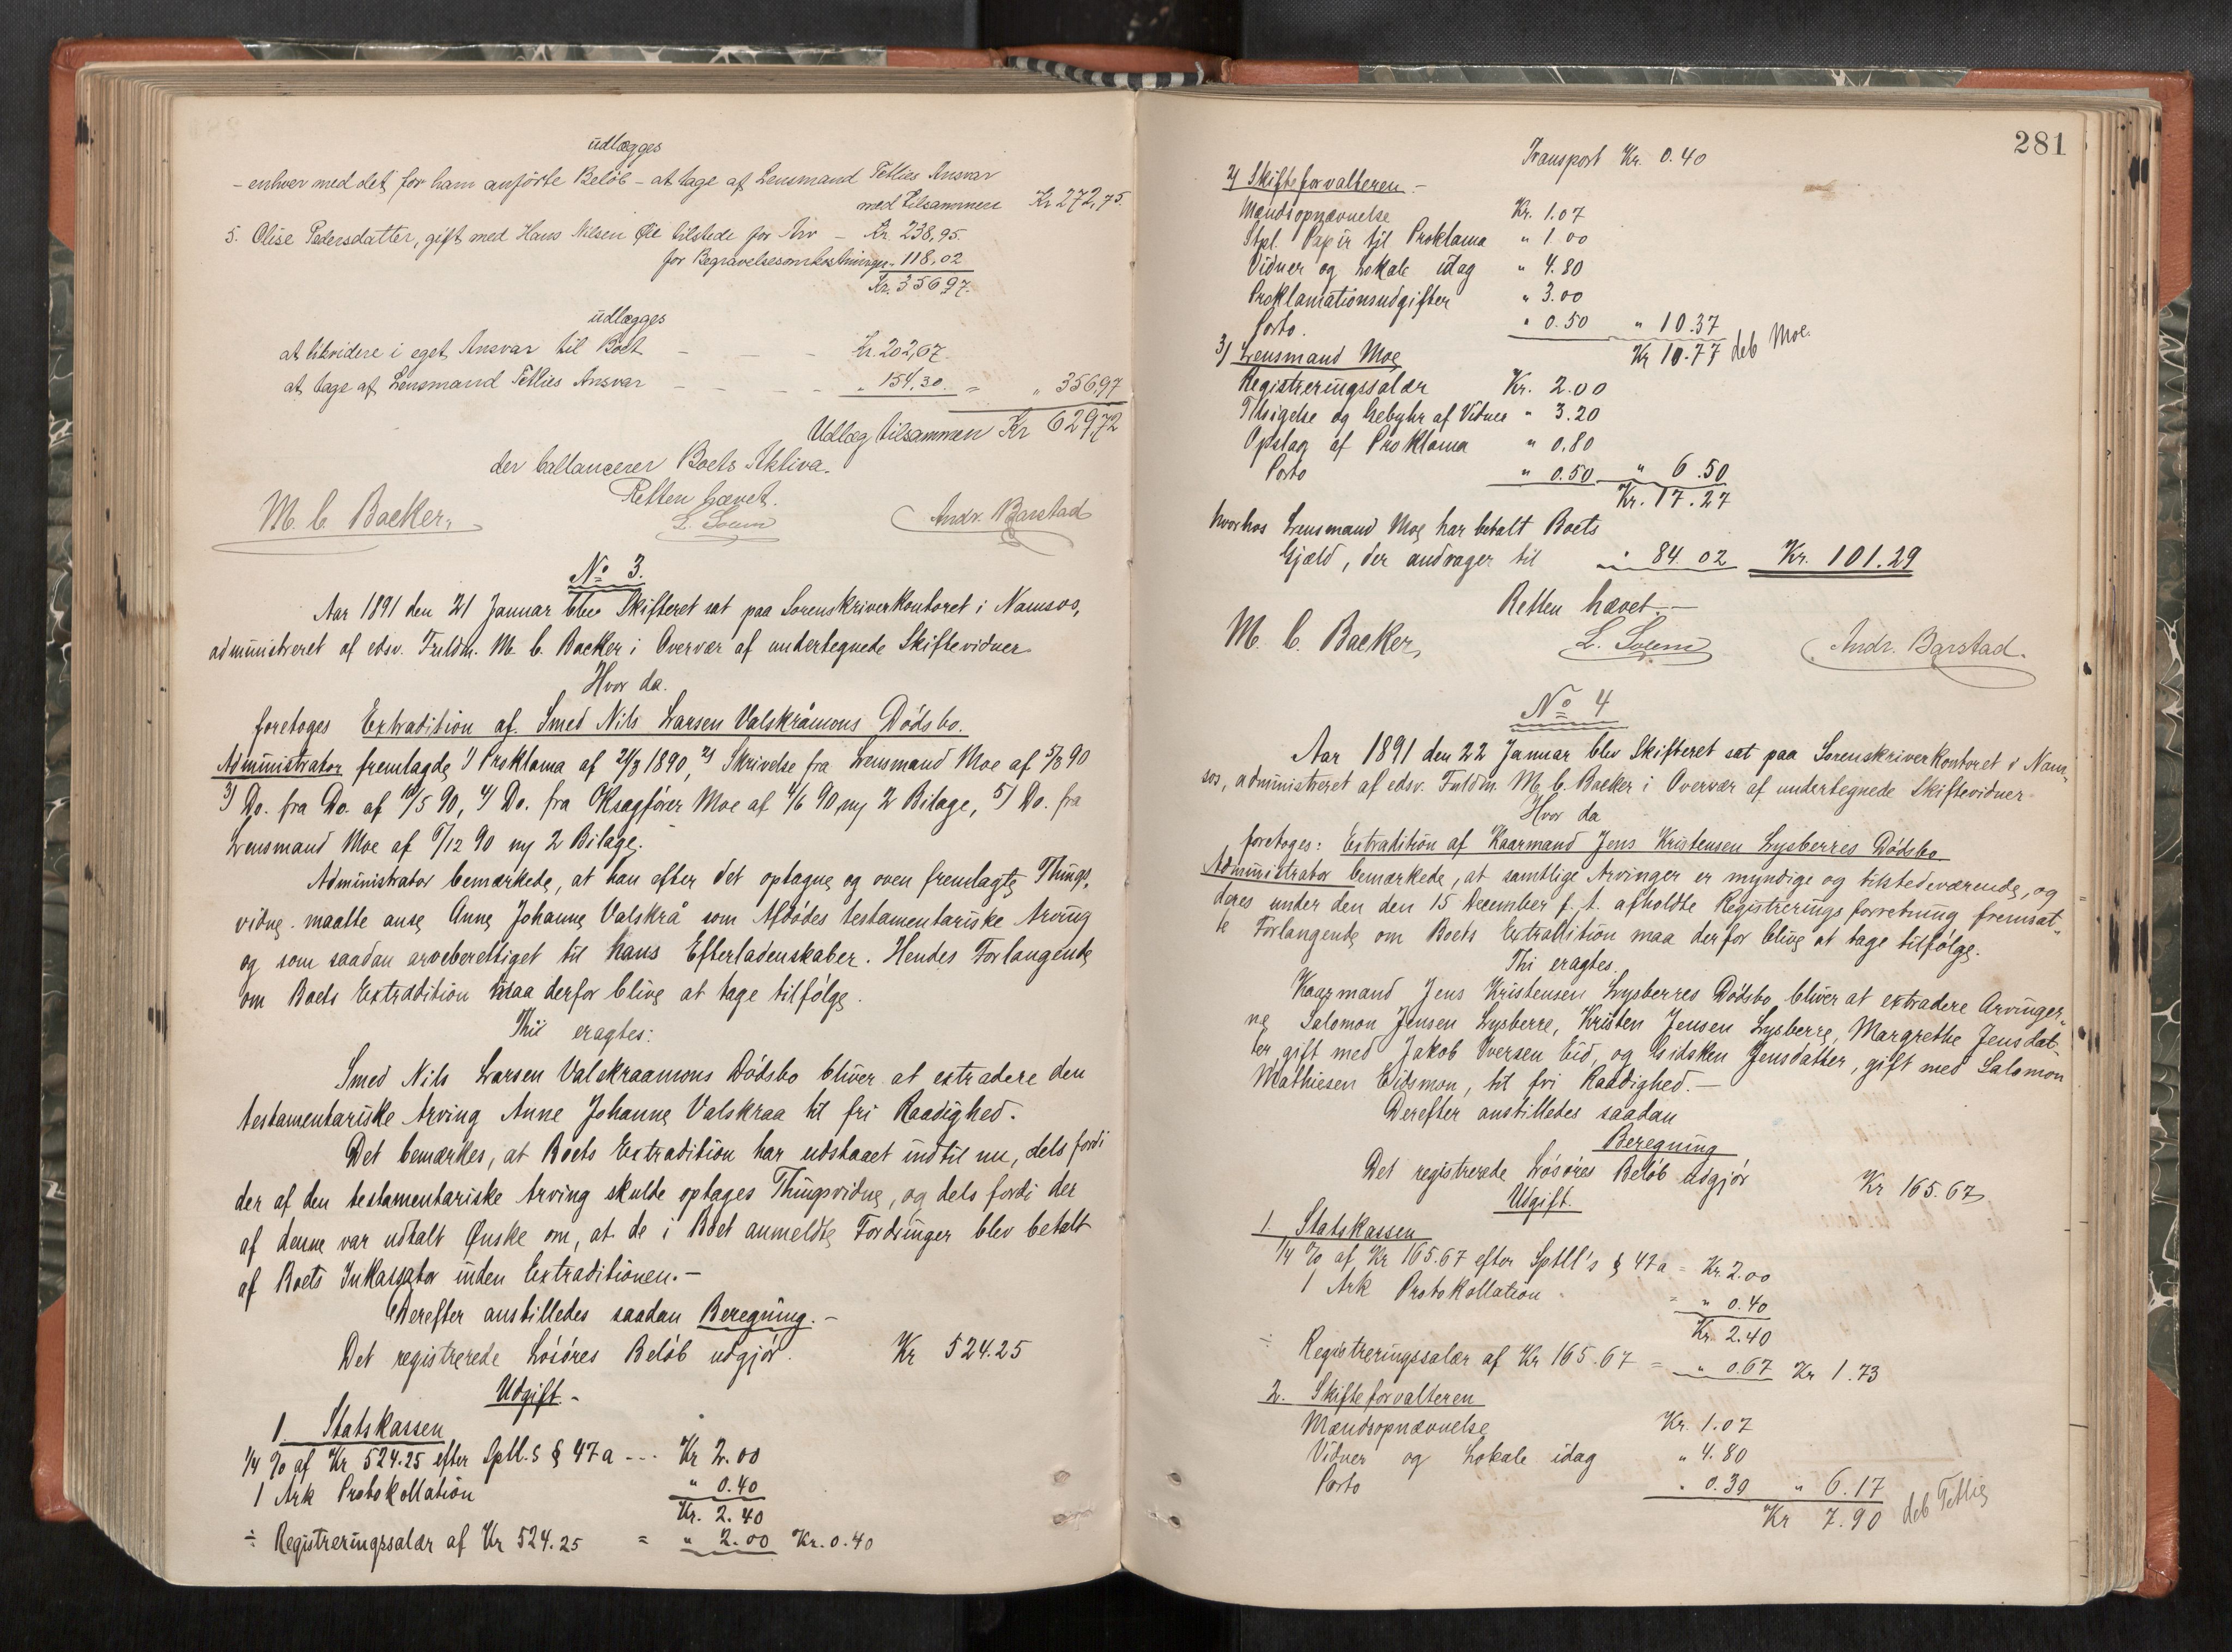 udlægges
- enhver med det for ham anførte Beløb - at tage af Lensmand Tetlies Ansvar
med tilsammen Kr 272,75.
5. Olise Pedersdatter, gift med Hans Nilsen Øie tilstede for Arv - Kr. 238,95.
for Begravelsesomkostninger " 118,02
Kr. 356,97.
udlægges
at likvidere i eget Ansvar til Boet - - Kr. 202,67.
at tage af Lensmand Tetlies Ansvar - - - - " 154,30. = " 356,97
Udlæg tilsammen Kr 629,72
der ballancerer Boets Aktiva.
Retten hævet.
M. C. Backer, L. Solem Andr. Barstad
No 3.
Aar 1891 den 21 Januar blev Skifteret sat paa Sorenskriverkontoret i Namsos,
administreret af edsv. Fuldm. M. C. Backer i Overvær af undertegnede Skiftevidner.
Hvor da.
foretoges Extradition af Smed Nils Larsen Valskråmons Dødsbo.
Administrator fremlagde 1) Proklama af 21/3 1890, 2) Skrivelse fra Lensmand Moe af 5/3 90
3) Do. fra Do. af 10/5 90, 4) Do. fra O'Ksagfører Moe af 4/6 90 m 2 Bilage, 5) Do. fra
Lensmand Moe af 6/12 90 m 2 Bilage.
Administrator bemærkede, at han efter det optagne og oven fremlagte Things-
vidne maatte anse Anne Johanne Valskrå som Afdødes testamentariske Arving
og som saadan arveberettiget til hans Efterladenskaber. Hendes Forlangende
om Boets Extradition maa derfor blive at tage tilfølge.
Thi eragtes:
Smed Nils Larsen Valskraamons Dødsbo bliver at extradere den
testamentariske Arving Anne Johanne Valskraa til fri Raadighed.
Det bemærkes, at Boets Extradition har udstaaet indtil nu, dels fordi
der af den testamentariske Arving skulde optages Thingsvidne, og dels fordi der
af denne var udtalt Ønske om, at de i Boet anmeldte Fordringer blev betalt
af Boets Inkassator inden Extraditionen. -
Derefter anstilledes saadan Beregning. -
Det registrerede Løsøres Beløb udgjør. Kr 524.25
Udgift -
1. Statskassen
1/4 % af Kr 524.25 efter Sptl.s § 47a --- Kr 2.00
1 Ark Protokollation " 0.40
Kr. 2.40
÷ Registreringssalær af Kr 524.25 = " 2.00 Kr. 0.40
281
Transport Kr. 0.40
2) Skifteforvalteren -
Mændsopnævnelse Kr. 1.07
Stpl. Papir til Proklama " 1.00
Vidner og Lokale idag " 4.80
Proklamationsudgifter " 3.00
Porto. " 0.50 " 10.37
Kr 10.77 deb Moe.
3) Lensmand Moe
Registreringssalær Kr. 2.00
Tilsigelse og Gebyhr af Vidner " 3.20
Opslag af Proklama " 0.80
Porto " 0.50 " 6.50
Kr. 17.27
hvorhos Lensmand Moe har betalt Boets
Gjæld, der andrager til " 84.02 Kr. 101.29
Retten hævet. -
M. C. Backer, L. Solem Andr. Barstad.
No 4
Aar 1891 den 22 Januar blev Skifteret sat paa Sorenskriverkontoret i Nam-
sos, administreret af edsv. Fuldm. M. C. Backer i Overvær af undertegnede Skiftevidner
Hvor da
foretoges: Extradition af Kaarmand Jens Kristensen Lysberres Dødsbo
Administrator bemærkede, at samtlige Arvinger er myndige og tilstedeværende, og
deres under den den 15 December f. A. afholdte Registreringsforretning fremsat-
te Forlangende om Boets Extradition maa derfor blive at tage tilfølge.
Thi eragtes.
Kaarmand Jens Kristensen Lysberres Dødsbo bliver at extradere Arvinger-
ne Salomon Jensen Lysberre, Kristen Jensen Lysberre, Margrethe Jensdat-
ter gift med Jakob Iversen Eid, og Gidsken Jensdatter, gift med Salomon
Mathiesen Eidsmon, til fri Raadighed. -
Derefter anstilledes saadan
Beregning
Det registrerede Løsøres Beløb udgjør Kr 165.67
Udgift.
1. Statskassen
1/4 % af Kr 165.67 efter Sptll's § 47a = Kr. 2.00
1 Ark Protokollation = " 0.40
Kr. 2.40
÷ Registreringssalær af Kr 165.67 = " 0.67 Kr 1.73
2. Skifteforvalteren
Mændsopnævnelse Kr. 1.07
Vidner og Lokale idag " 4.80
Porto " 0.30 " 6.17
Kr 7.90 deb Tetlie